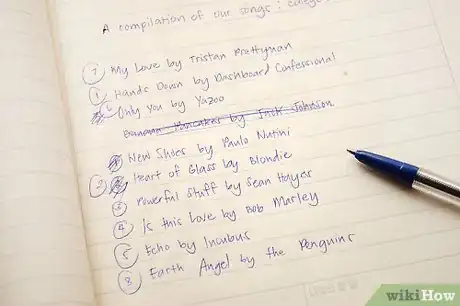 A compilation of our songs:
7 My Love by Tristan Prettyman
1 Hands Down by Dashboard Confessional
6 Only You by Yazoo
Banana Pancakes by Jack Johnson
New Shoes by Paulo Nutini
2 Heart of Glass by Blondie
3 Powerful Stuff by Sean Hayes
4 Is this Love by Bob Marley
5 Echo by Incubus
8 Earth Angel by the Penguins
wikiHow